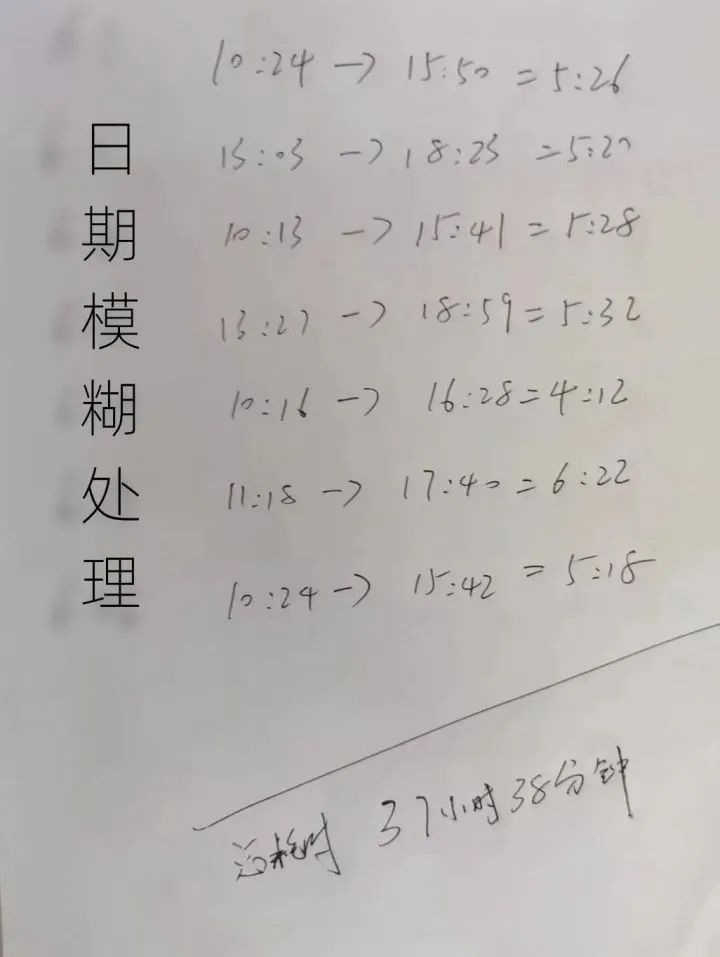 10:24 → 15:50 = 5:26
13:03 → 18:23 = 5:20
10:13 → 15:41 = 5:28
13:27 → 18:59 = 5:32
10:16 → 16:28 = 4:12
11:18 → 17:40 = 6:22
10:24 → 15:42 = 5:18
总耗时 37小时38分钟
日期模糊处理